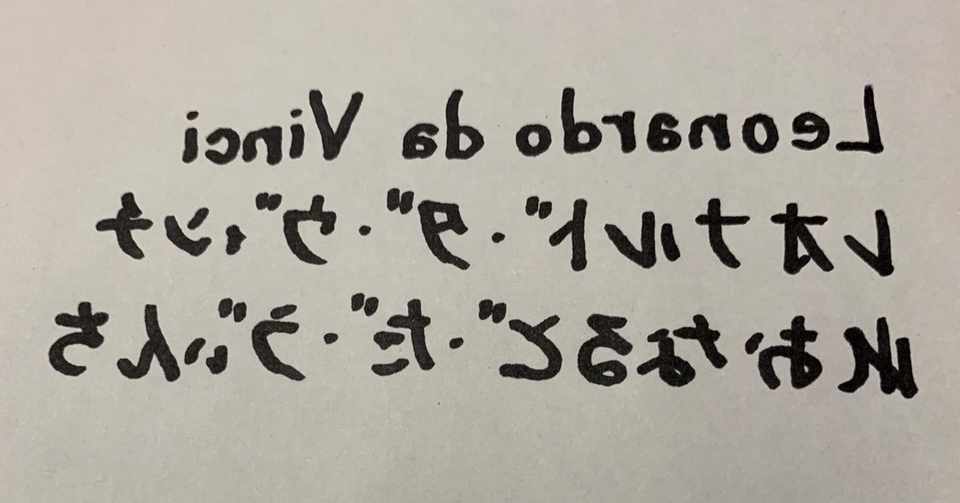 Leonardo da Vinci
レオナルド・ダ・ヴィンチ
れおなるど・だ・ゔぃんち